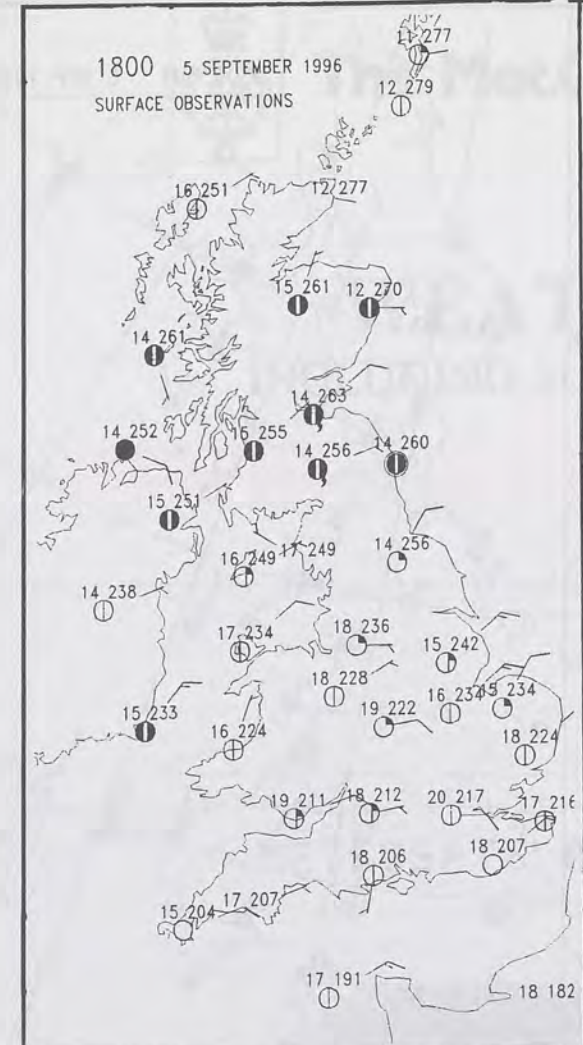 11 277
1800 5 SEPTEMBER 1996
SURFACE OBSERVATIONS
12 279
16 251
12 277
15 261
12 270
14 261
14 263
14 252
16 255
14 256
14 260
15 251
16 249
17 249
14 256
14 238
17 234
18 236
15 242
18 228
16 234
15 234
15 233
16 224
19 222
18 224
19 211
18 212
20 217
17 216
18 207
18 206
17 207
15 204
17 191
18 182